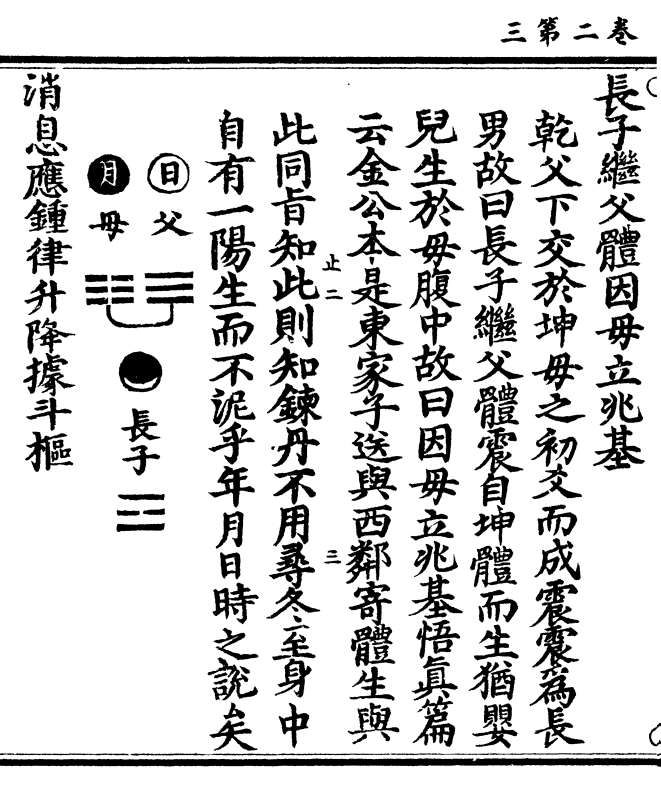 三第二卷
長子繼父體因毋立兆基
乾父下交於坤毋之初爻而成震震爲長
男故曰長子繼父體震自坤體而生猶嬰
兒生於毋腹中故曰因毋立兆基悟眞篇
云金公本是東家子送與西鄰寄體生與
止二
三
此同旨知此則知鍊丹不用尋冬至身中
自有一陽生而不泥乎年月日時之説矣
日父
月毋
長子
消息應鍾律升降據斗樞